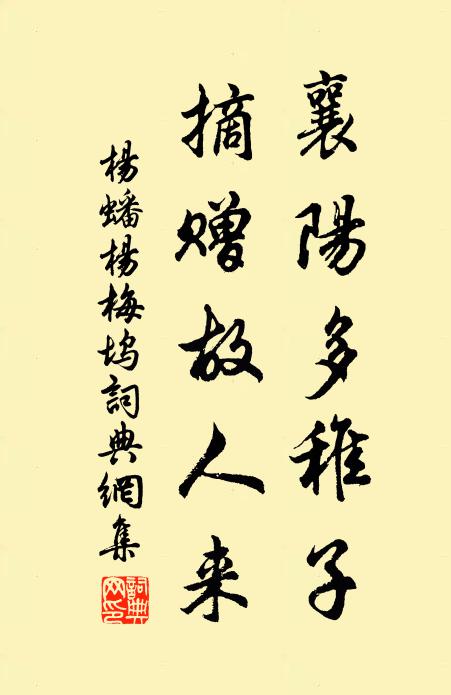 襄陽多稚子
摘贈故人来
楊蟠楊梅塢詞典網集
詞典網印